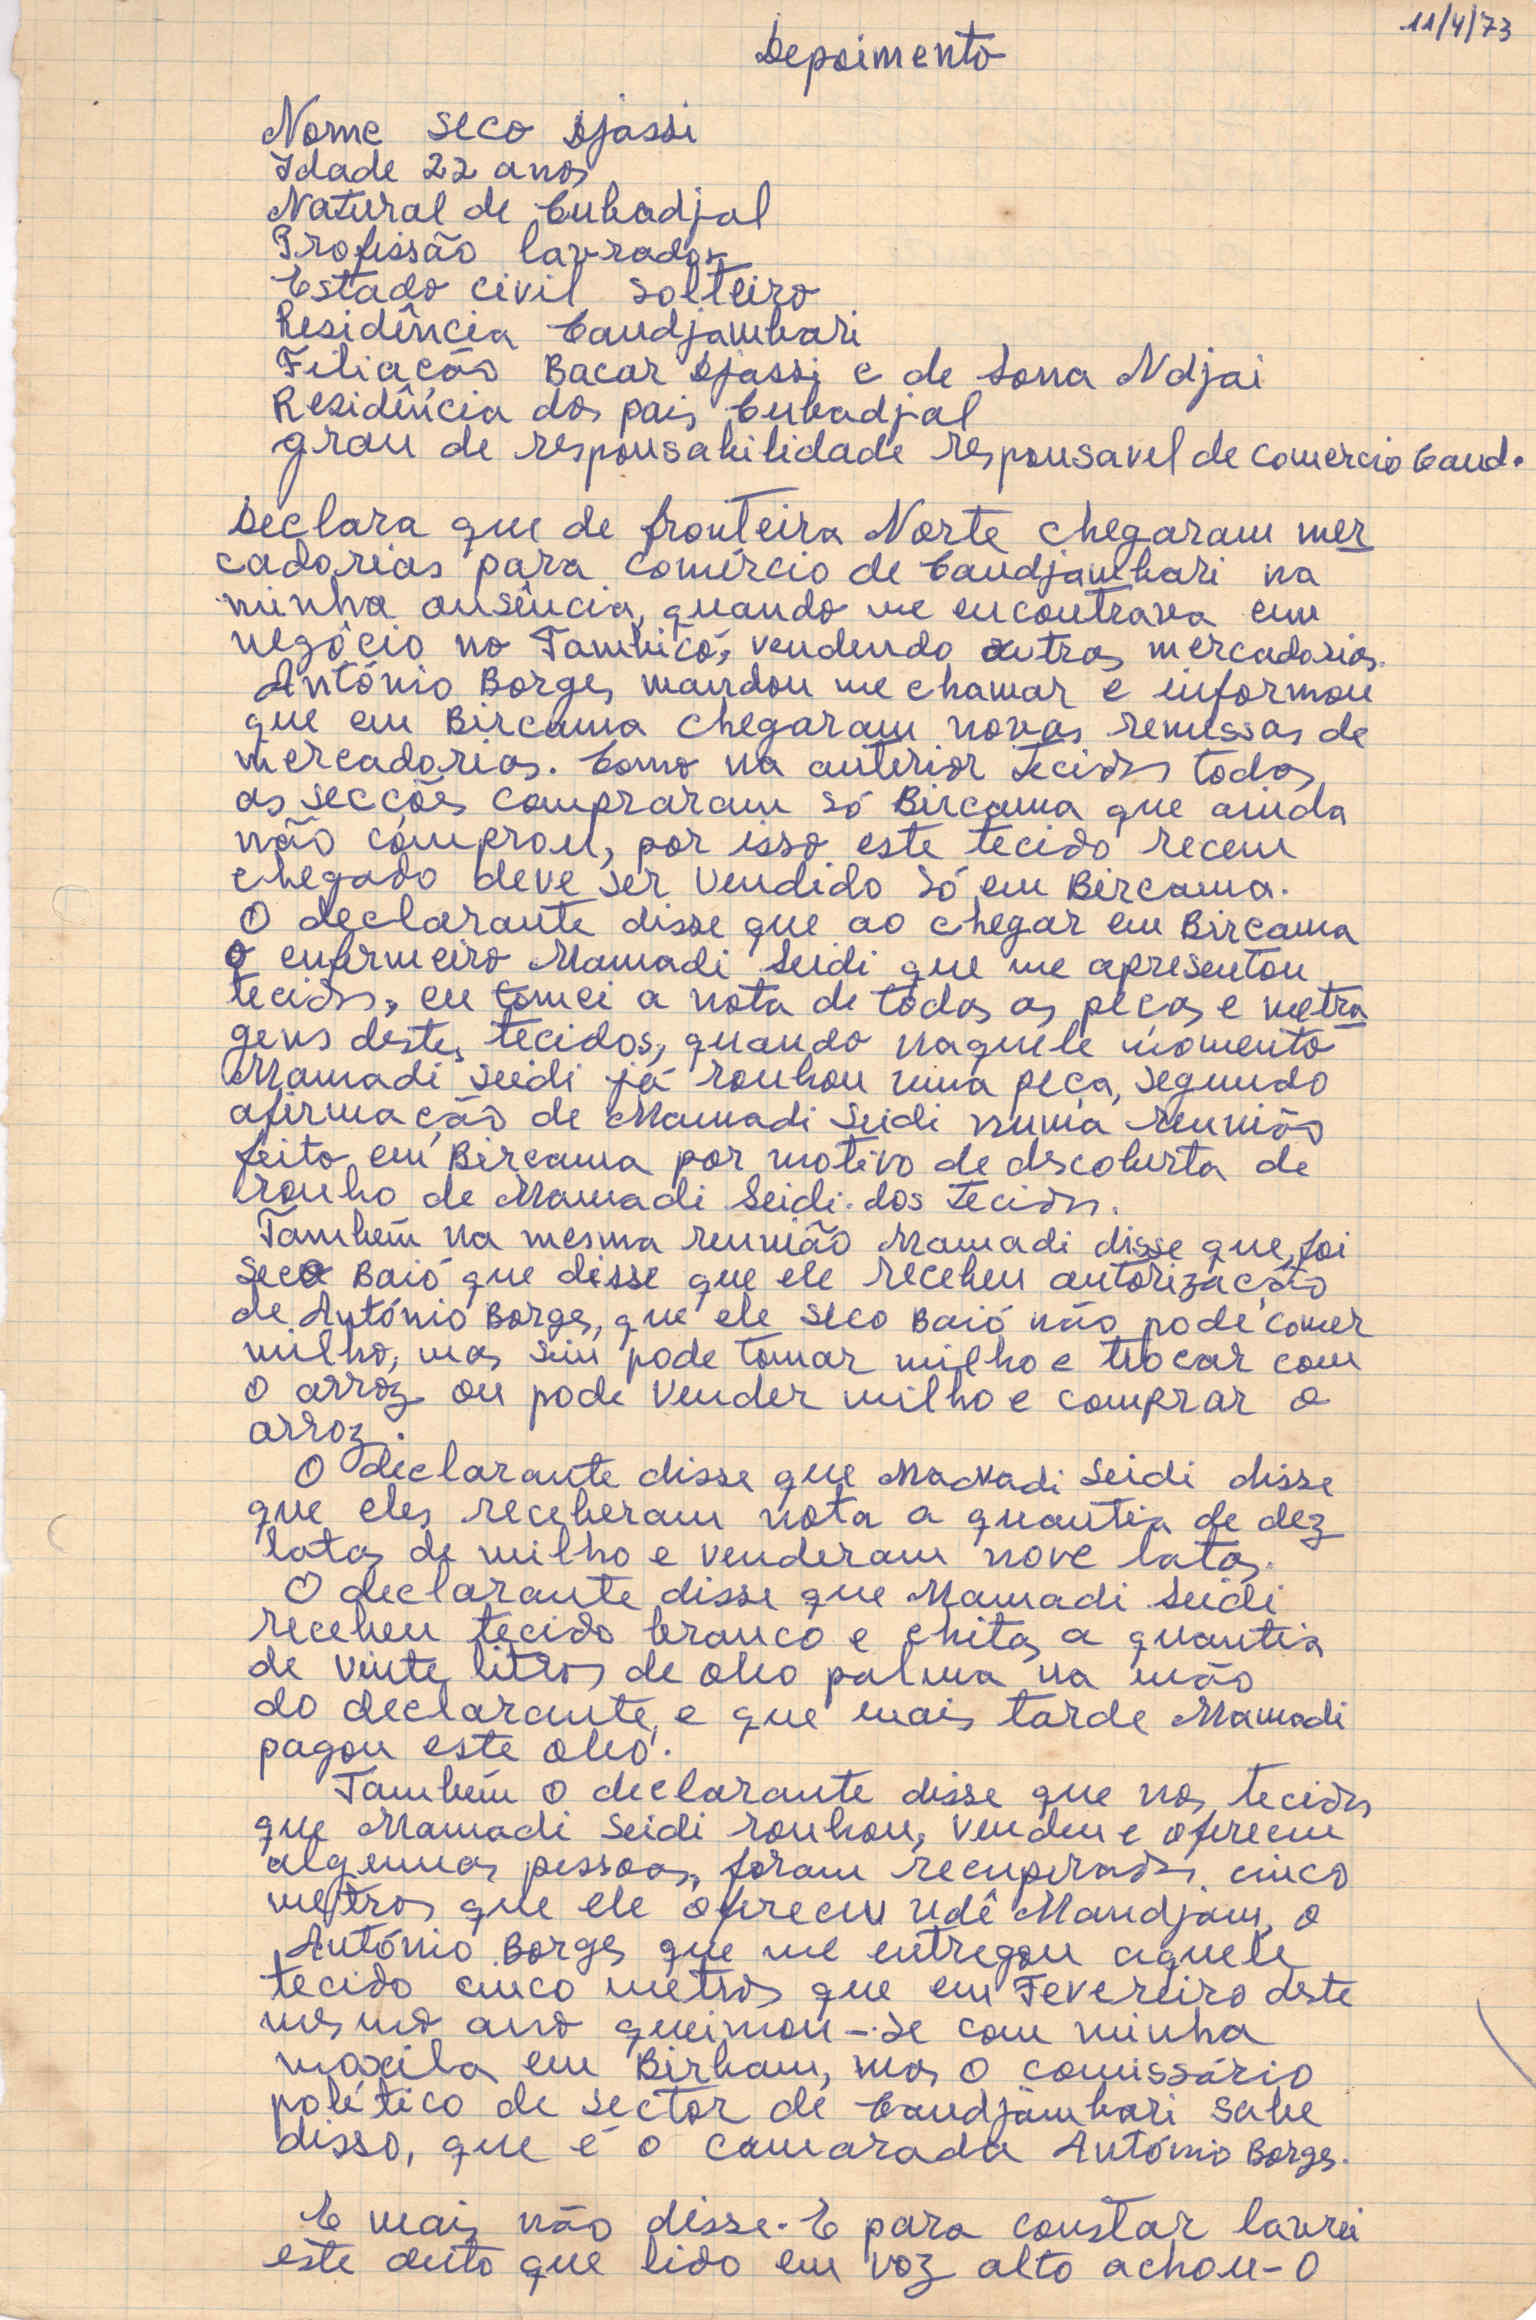 11/4/73
Depoimento
Nome Seco Djassi
Idade 22 anos
Natural de Cubadjal
Profissão lavrador
Estado civil solteiro
Residência Candjambari
Filiação Bacar Djassi e de Sona Ndjai
Residência dos pais Cubadjal
grau de responsabilidade responsavel de comercio Cand.
Declara que de fronteira Norte chegaram mer
cadorias para comércio de Candjambari na
minha ausência, quando me encontrava em
negócio no Tambicó, vendendo outras mercadorias.
António Borges mandou me chamar e informou
que em Bircama chegaram novas remissas de
mercadorias. Como na anterior tecidos todas
as secções compraram só Bircama que ainda
não comprou, por isso este tecido recem
chegado deve ser vendido só em Bircama.
O declarante disse que ao chegar em Bircama
o enfermeiro Mamadi Seidi que me apresentou
tecidos, eu tomei a nota de todas as peças e metra
gens destes tecidos, quando naquele momento
Mamadi Seidi já roubou uma peça, segundo
afirmação de Mamadi Seidi numa reunião
feito em Bircama por motivo de descoberta de
roubo de Mamadi Seidi dos tecidos.
Também na mesma reunião Mamadi disse que, foi
Seco Baió que disse que ele recebeu autorização
de António Borges, que ele Seco Baió não pode comer
milho, mas sim pode tomar milho e trocar com
o arroz ou pode vender milho e comprar o
arroz.
O declarante disse que Mamadi Seidi disse
que eles receberam nota a quantia de dez
latas de milho e venderam nove latas.
O declarante disse que Mamadi Seidi
recebeu tecido branco e chitas a quantia
de vinte litros de oleo palma na mão
do declarante, e que mais tarde Mamadi
pagou este oleo.
Também o declarante disse que nos tecidos
que Mamadi Seidi roubou, vendeu e ofereceu
algumas pessoas, foram recuperados cinco
metros que ele ofereceu udê Mandjam, o
António Borges que me entregou aquele
tecido cinco metros que em Fevereiro deste
mesmo ano queimou-se com minha
moxila em Birbam, mas o comissário
político de sector de Candjambari sabe
disso, que é o camarada António Borges.
E mais não disse. E para constar lavrei
este auto que lido em voz alto achou-o